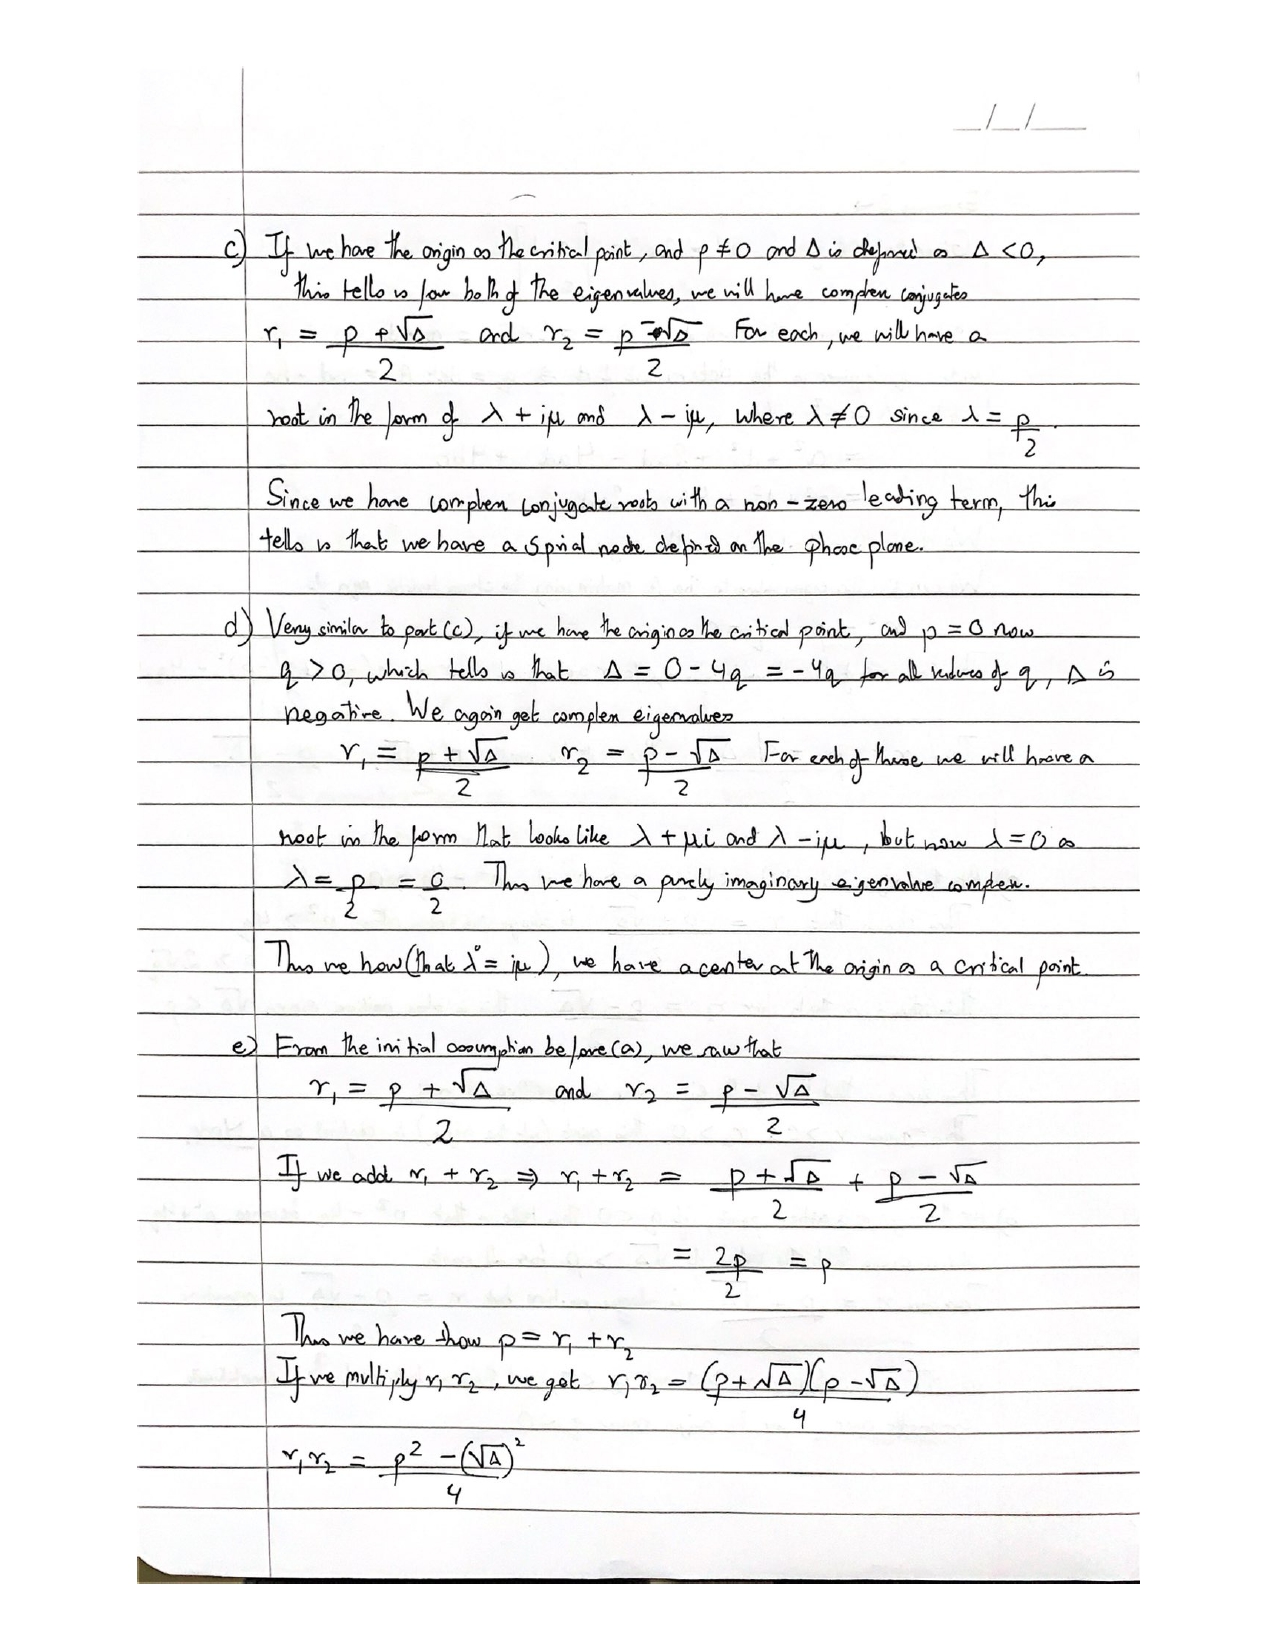 __/__/____
c) If we have the origin as the critical point, and p ≠ 0 and Δ is defined as Δ < 0,
this tells us for both of the eigenvalues, we will have complex conjugates
r₁ = (p + √Δ)/2 and r₂ = (p - √Δ)/2 For each, we will have a
root in the form of λ + iμ and λ - iμ, where λ ≠ 0 since λ = p/2.
Since we have complex conjugate roots with a non-zero leading term, this
tells us that we have a spiral node defined on the phase plane.
d) Very similar to part (c), if we have the origin as the critical point, and p = 0 now
q > 0, which tells us that Δ = 0 - 4q = -4q for all values of q, Δ is
negative. We again get complex eigenvalues
r₁ = (p + √Δ)/2 r₂ = (p - √Δ)/2 For each of these we will have a
root in the form that looks like λ + μi and λ - iμ, but now λ = 0 as
λ = p/2 = 0/2. Thus we have a purely imaginary eigenvalue complex.
Thus we have (that λ = iμ), we have a center at the origin as a critical point.
e) From the initial assumption before (a), we saw that
r₁ = (p + √Δ)/2 and r₂ = (p - √Δ)/2
If we add r₁ + r₂ ⇒ r₁ + r₂ = (p + √Δ)/2 + (p - √Δ)/2
= 2p/2 = p
Thus we have show p = r₁ + r₂
If we multiply r₁ r₂, we get r₁r₂ = (p + √Δ)(p - √Δ)/4
r₁r₂ = (p² - (√Δ)²)/4